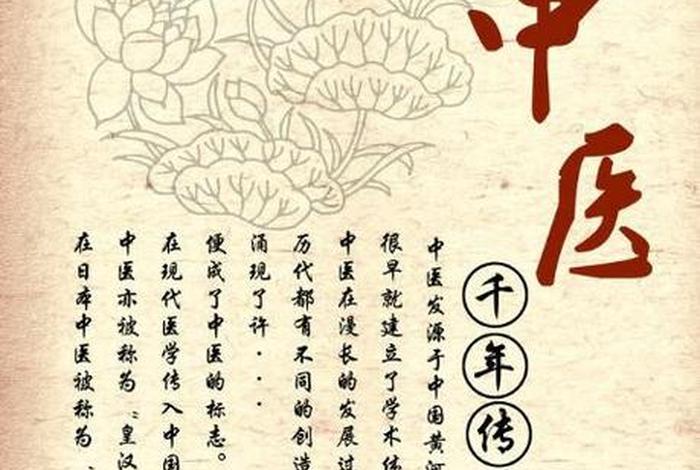 中医
千年传
中医发源于中国黄河
很早就建立了学术体
中医在漫长的发展过
历代都有不同的创造
涌现了许···
便成了中医的标志。
在现代医学传入中国
中医亦被称为“皇汉
在日本中医被称为